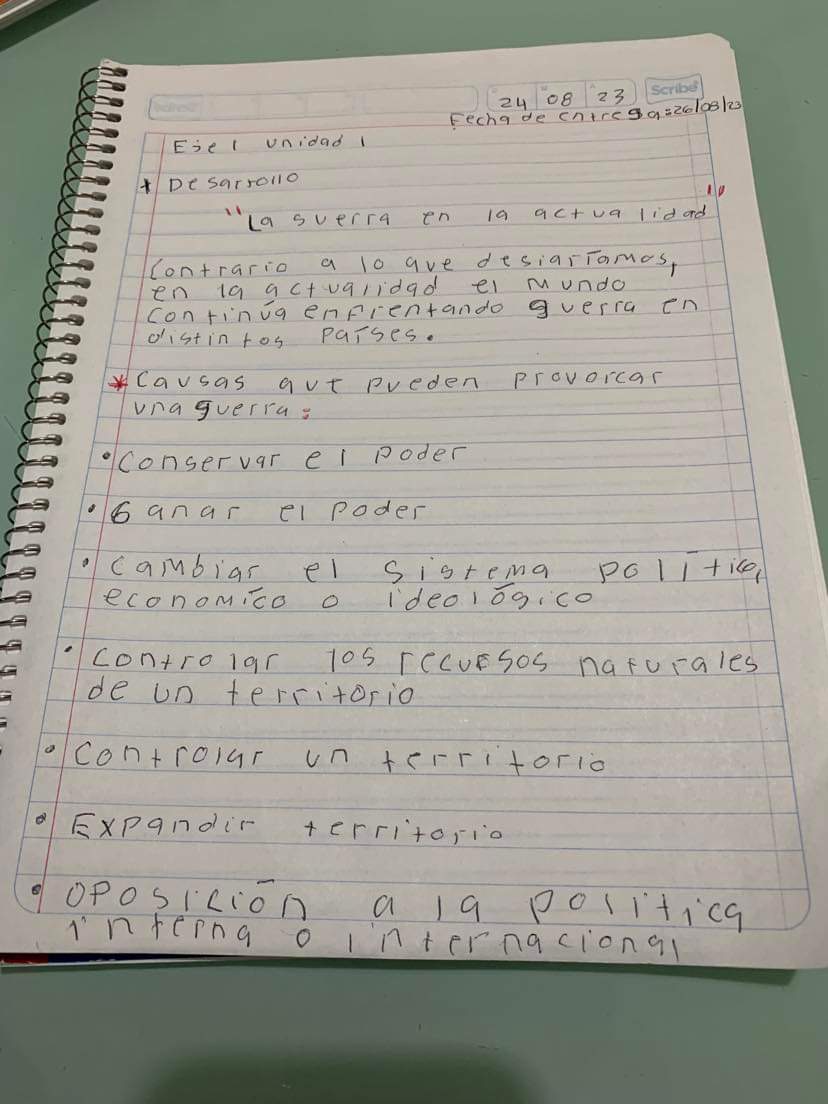 24 08 23 Scribe
Fecha de entrega=26/08/23
Eje 1 unidad 1
* Desarrollo
"La guerra en la actualidad"
Contrario a lo que desiaríamos,
en la actualidad el mundo
continúa enfrentando guerra en
distintos países.
* Causas que pueden provorcar
una guerra:
• Conservar el poder
• Ganar el poder
• Cambiar el sistema político,
economico o ideológico
• Controlar los recursos naturales
de un territorio
• Controlar un territorio
• Expandir territorio
• Oposición a la politica
interna o internacional